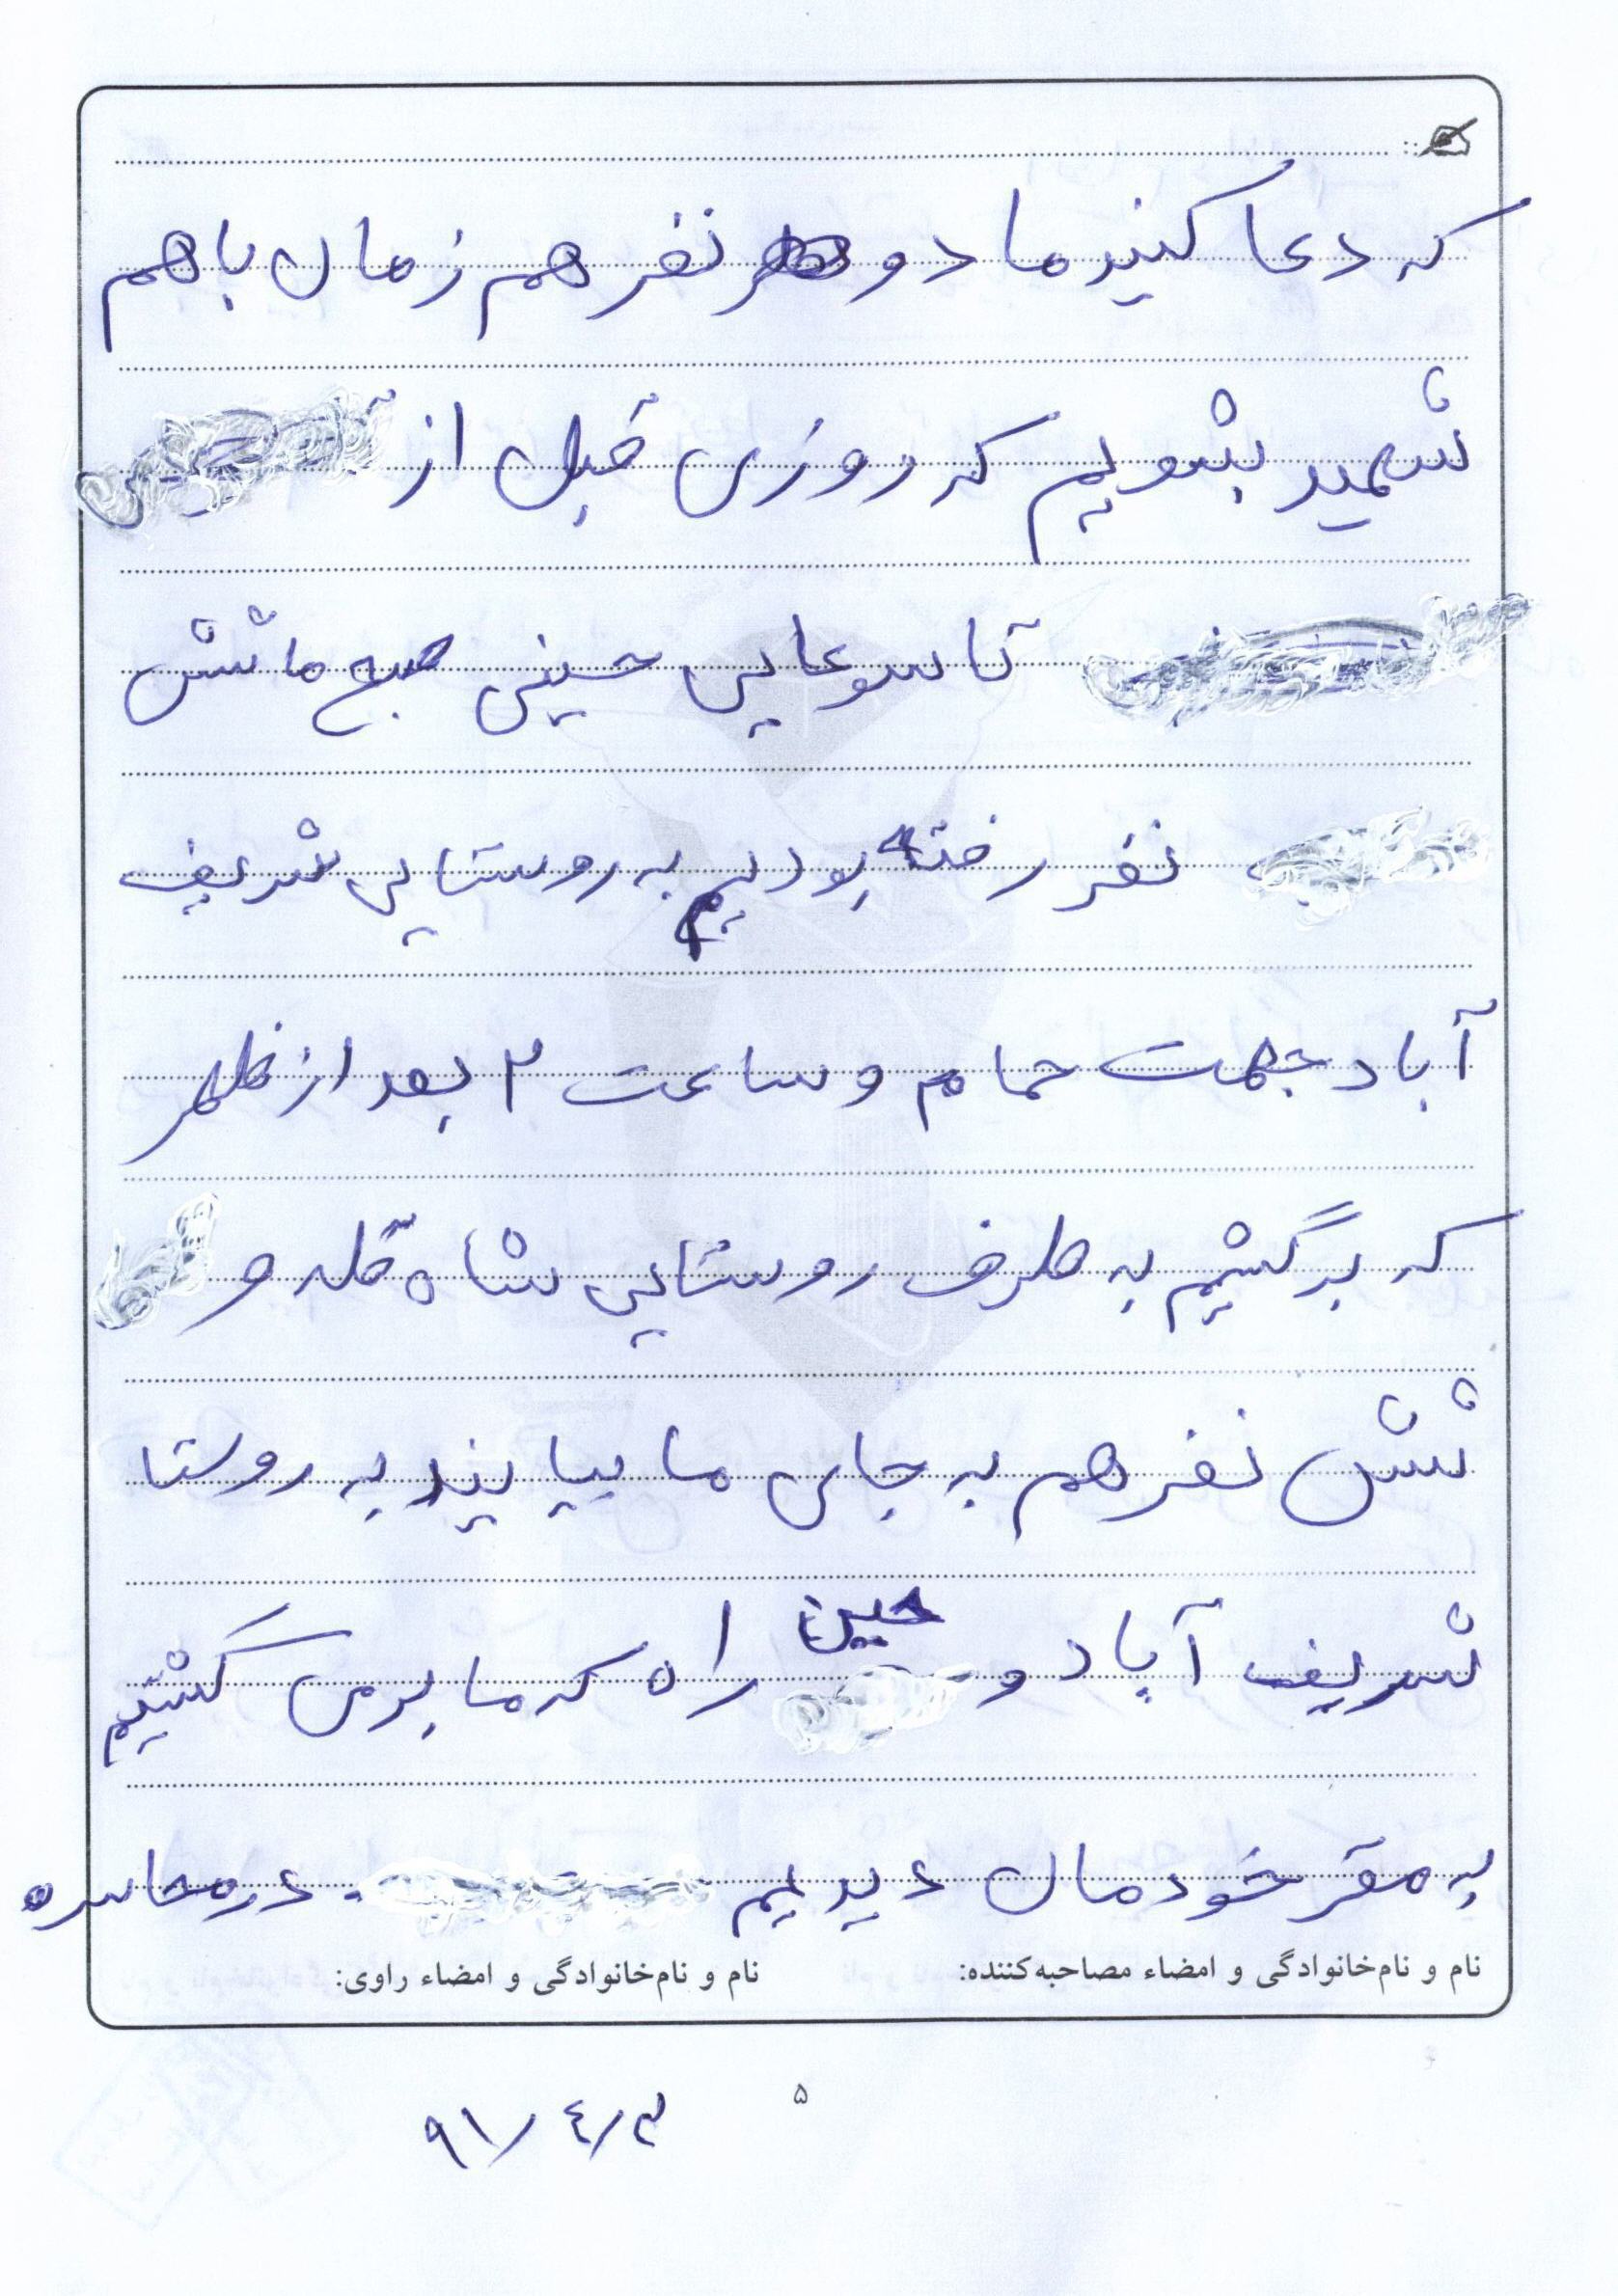 که دعا کنید ما دو نفر هم زمان با هم
شهید بشویم که روزی قبل از
تاسوعایی حسینی صبح ما شش
نفر رفته بودیم به روستایی شریف
آباد جهت حمام و ساعت ۲ بعد از ظهر
که برگشیم به طرف روستایی شاه قله و
شش نفر هم به جای ما بیایند به روستا
شریف آباد و حین راه که ما برمی گشتیم
به مقر خودمان دیدیم در محاسره
نام و نام‌خانوادگی و امضاء مصاحبه‌کننده: نام و نام‌خانوادگی و امضاء راوی:
۵
۹۱/۴/۳